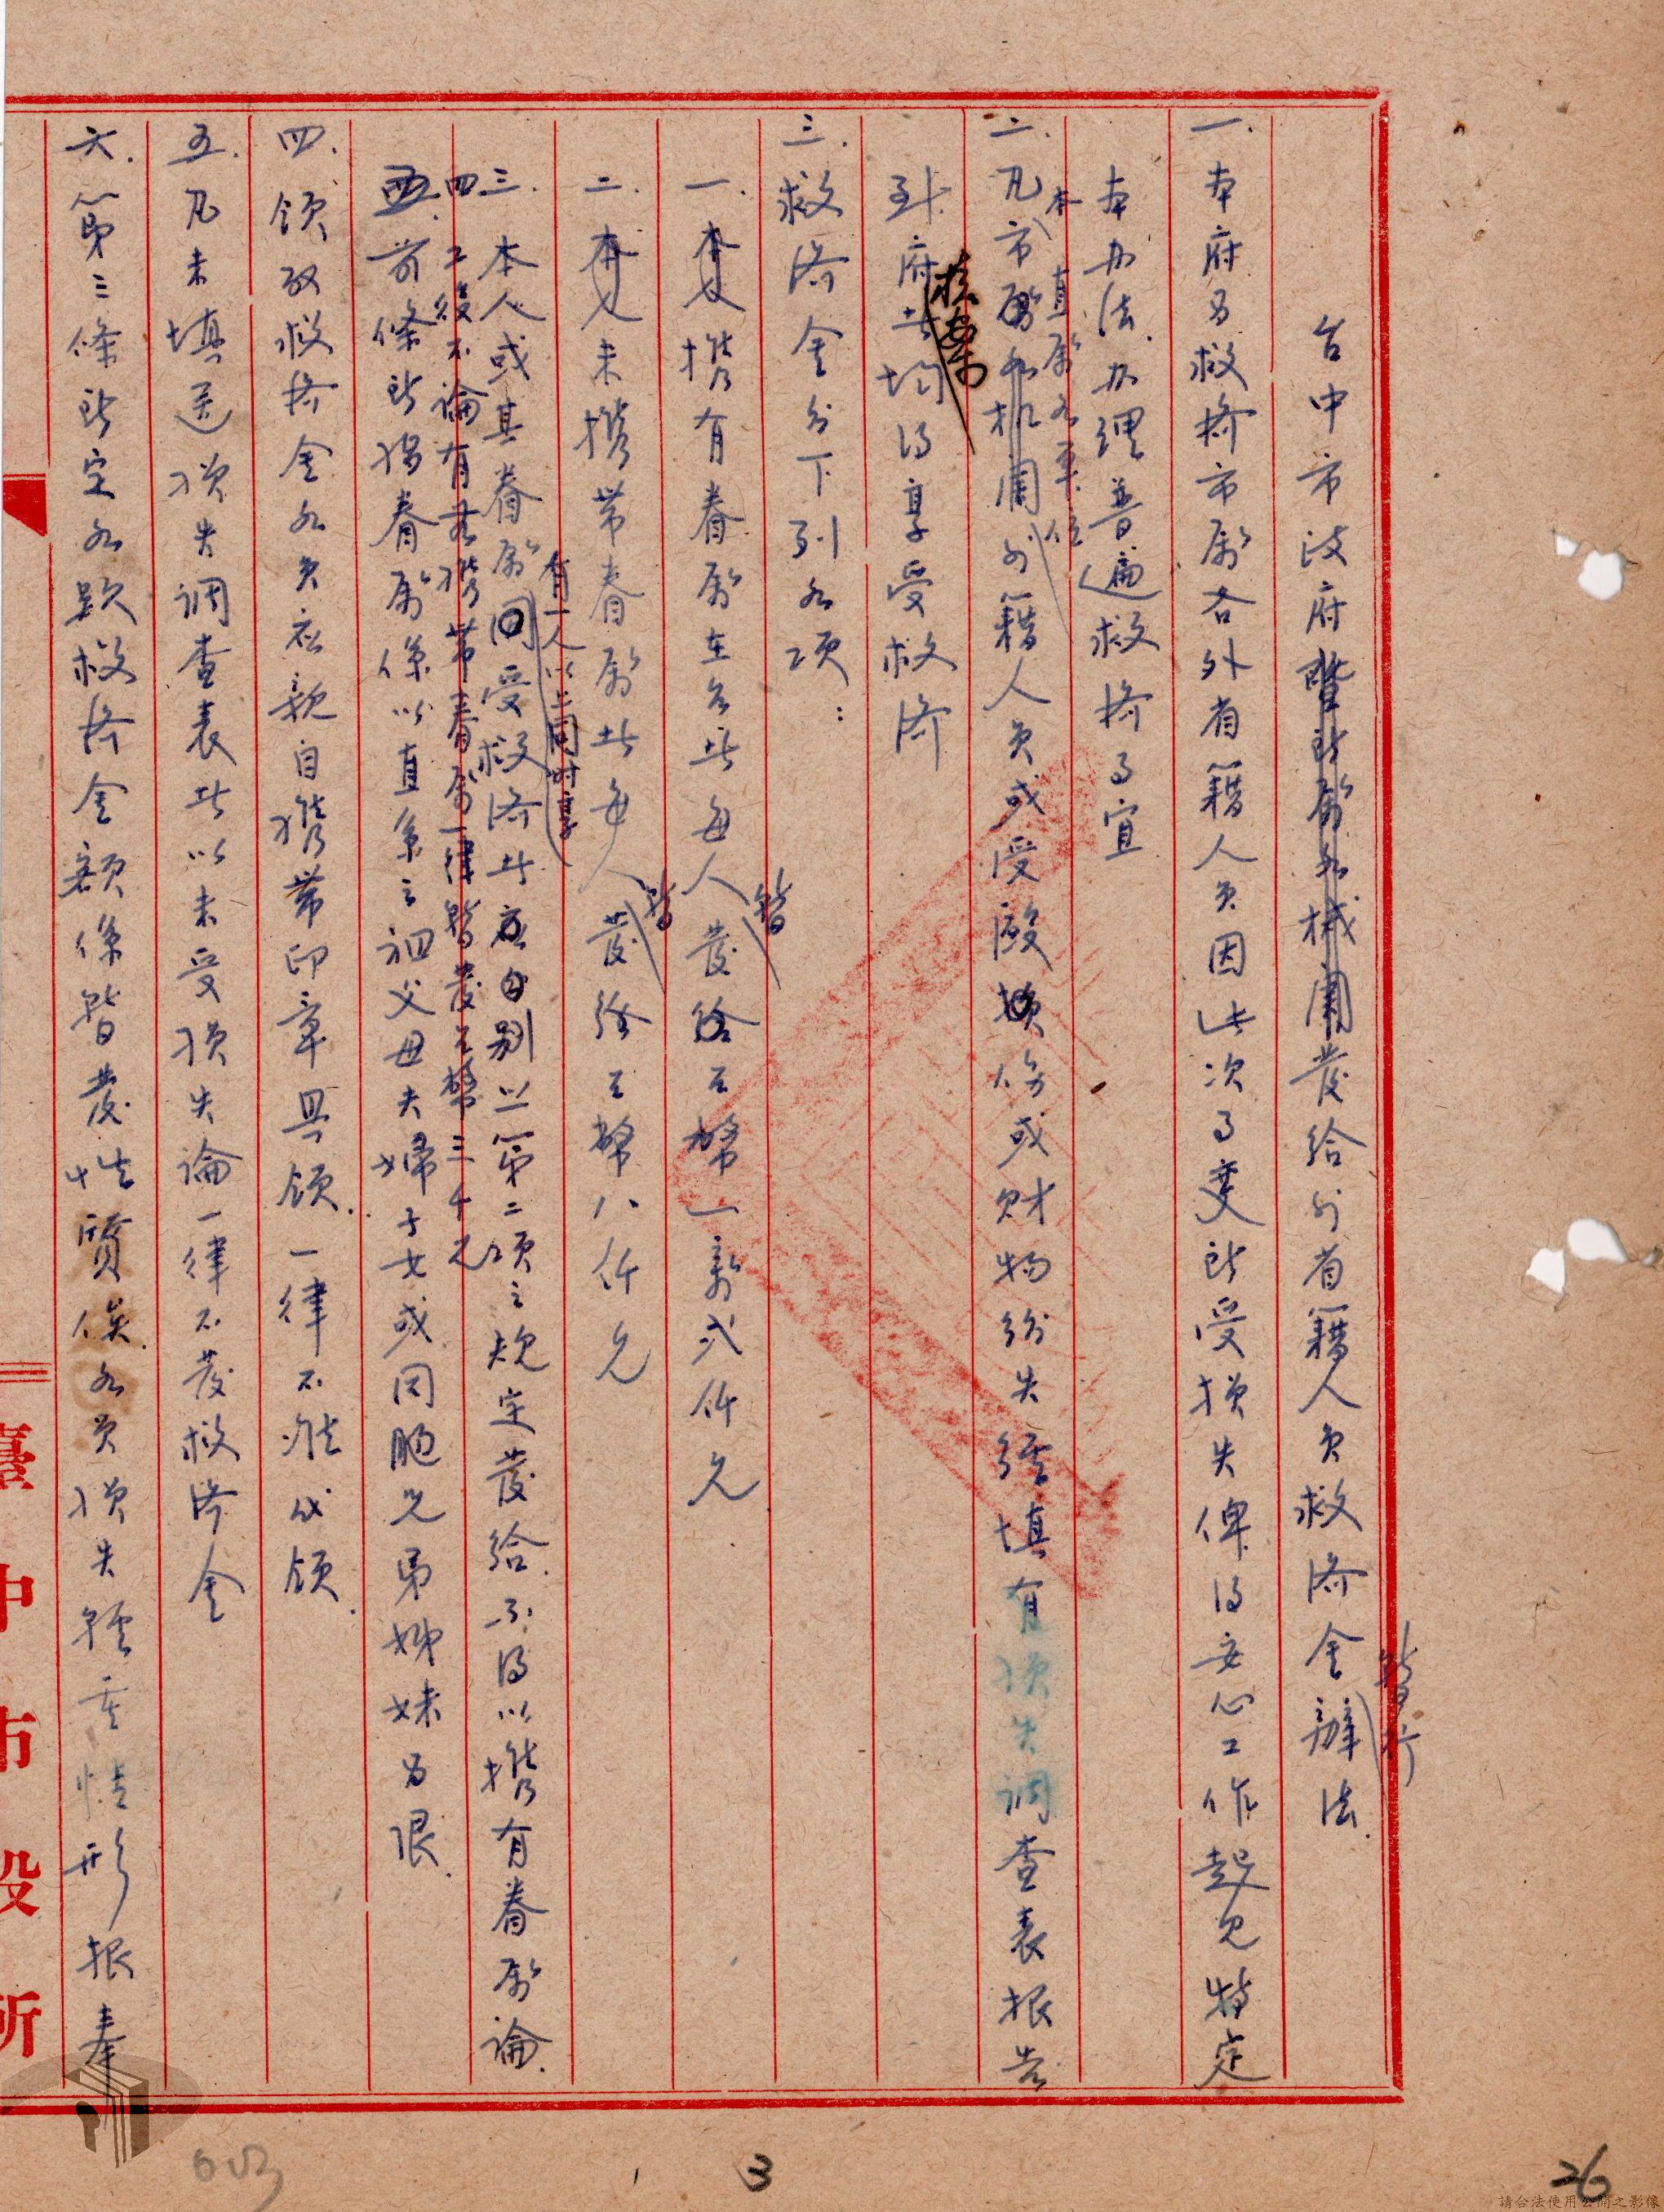 台中市政府暨所屬各機關發給外省籍人員救濟金暫行辦法
一.本府為救濟市屬各外省籍人員因此次事變所受損失俾得安心工作起見特定
本办法办理普遍救濟事宜
本直屬各單位
二.凡市屬各机關外籍人員或受毆損傷或財物紛失經填有損失調查表报告
核案
到府者均得享受救濟
三.救濟金分下列各項:
一.本人攜有眷屬在台者每人暫發給台幣一萬弍仟元
二.本人未攜帶眷屬者每人暫發給台幣八仟元
有一人以上同時享
三.本人或其眷屬同受救濟者應分別以第二項之規定發給.不得以攜有眷屬論.
四.工役不論有無攜帶眷屬一律暫發台幣三千元
五.前條所指眷屬係以直系之祖父母夫婦子女或同胞兄弟姊妹為限.
四.領取救濟金各員應親自攜帶印章具領.一律不能代領.
五.凡未填送損失調查表者以未受損失論一律不發救濟金
六.第三條所定各款救濟金額係暫發性質俟各員損失輕重情形报奉
臺中市役所
3
26
請合法使用公開之影像